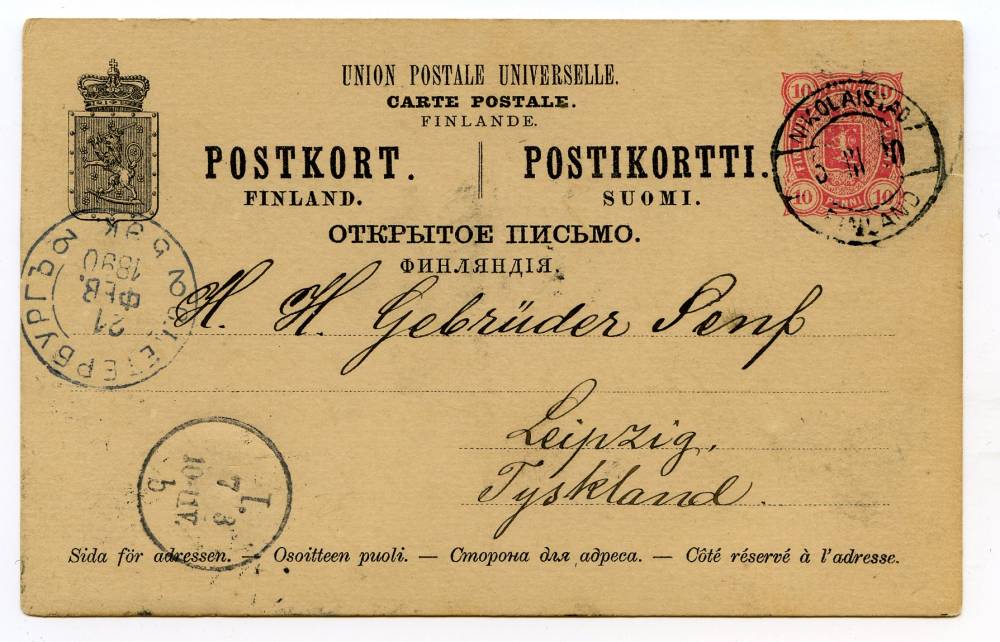 UNION POSTALE UNIVERSELLE.
CARTE POSTALE.
FINLANDE.
POSTKORT. POSTIKORTTI.
FINLAND. SUOMI.
ОТКРЫТОЕ ПИСЬМО.
ФИНЛЯНДІЯ.
10 10
10 PENNI 10
NIKOLAISTAD
FINLAND
С.ПЕТЕРБУРГЪ
21
ФЕВ.
1890
H. H. Gebrüder Senf
Leipzig,
Tyskland.
L.
7 3
b
Sida för adressen. — Osoitteen puoli. — Сторона для адреса. — Côté réservé à l'adresse.